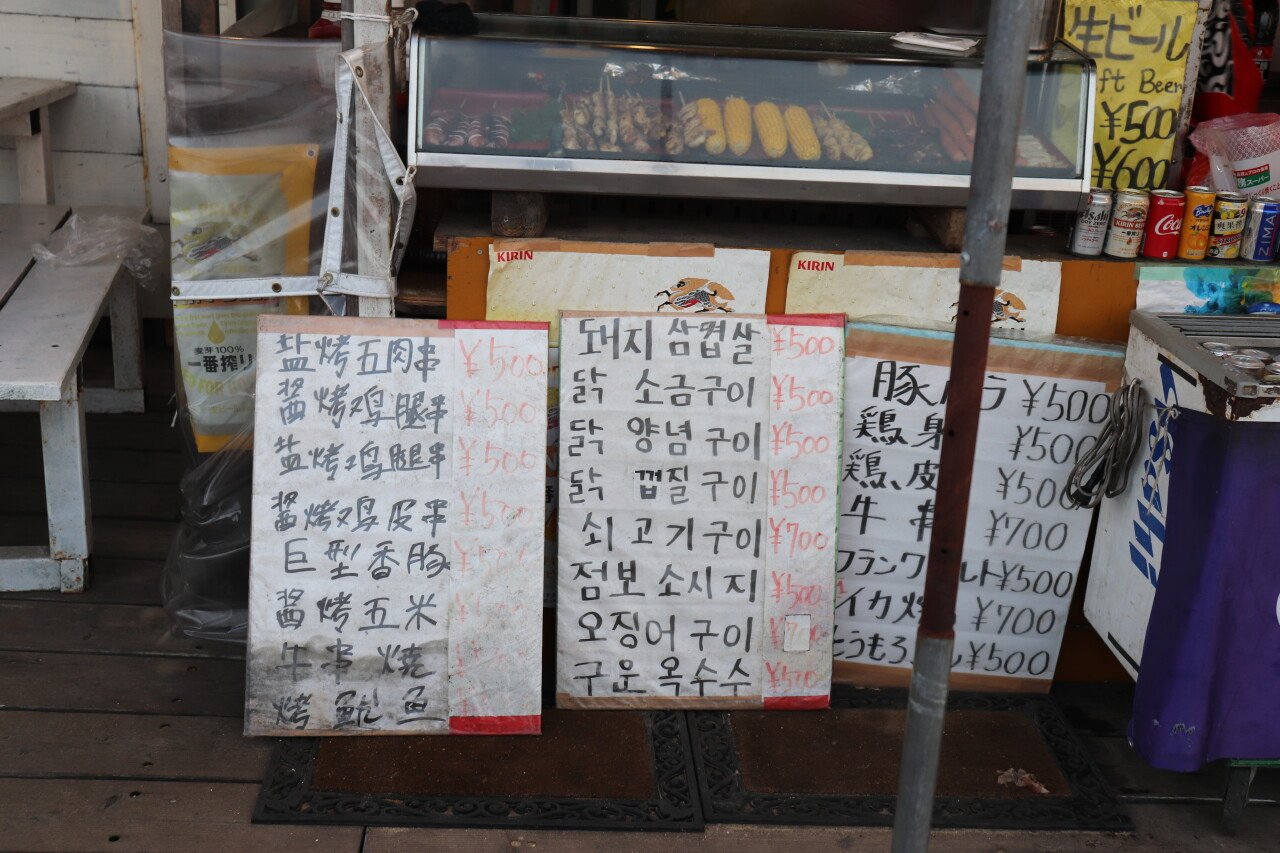 生ビール
ft Beer
¥500
¥600
KIRIN
KIRIN
Asahi
KIRIN
Coca
ZIMA
麦芽100%
一番搾り
盐烤五肉串 ¥500
酱烤鸡腿串 ¥500
盐烤鸡腿串 ¥500
酱烤鸡皮串 ¥500
巨型香豚
酱烤五米
牛串燒
烤魷鱼
돼지 삼겹살 ¥500
닭 소금구이 ¥500
닭 양념구이 ¥500
닭 껍질구이 ¥500
쇠고기구이 ¥700
점보소시지 ¥500
오징어구이 ¥700
구운옥수수 ¥500
豚バラ ¥500
鶏 ¥500
鶏皮 ¥500
牛串 ¥700
フランクルト ¥500
イカ焼 ¥700
とうもろ ¥500